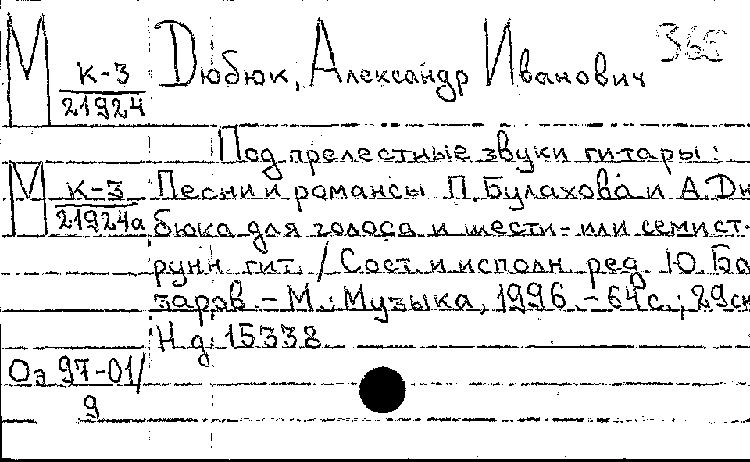 М К-3 Дюбюк, Александр Иванович 365
21924
Под прелестные звуки гитары:
М К-3 Песни и романсы П. Булахова и А. Дю
21924а бюка для голоса и шести- или семист-
рунн. гит. / Сост. и исполн. ред. Ю. Ба
заров. - М.: Музыка, 1996. - 64 с.; 29 см
Н. д. 15338
Оэ 97-01/
9